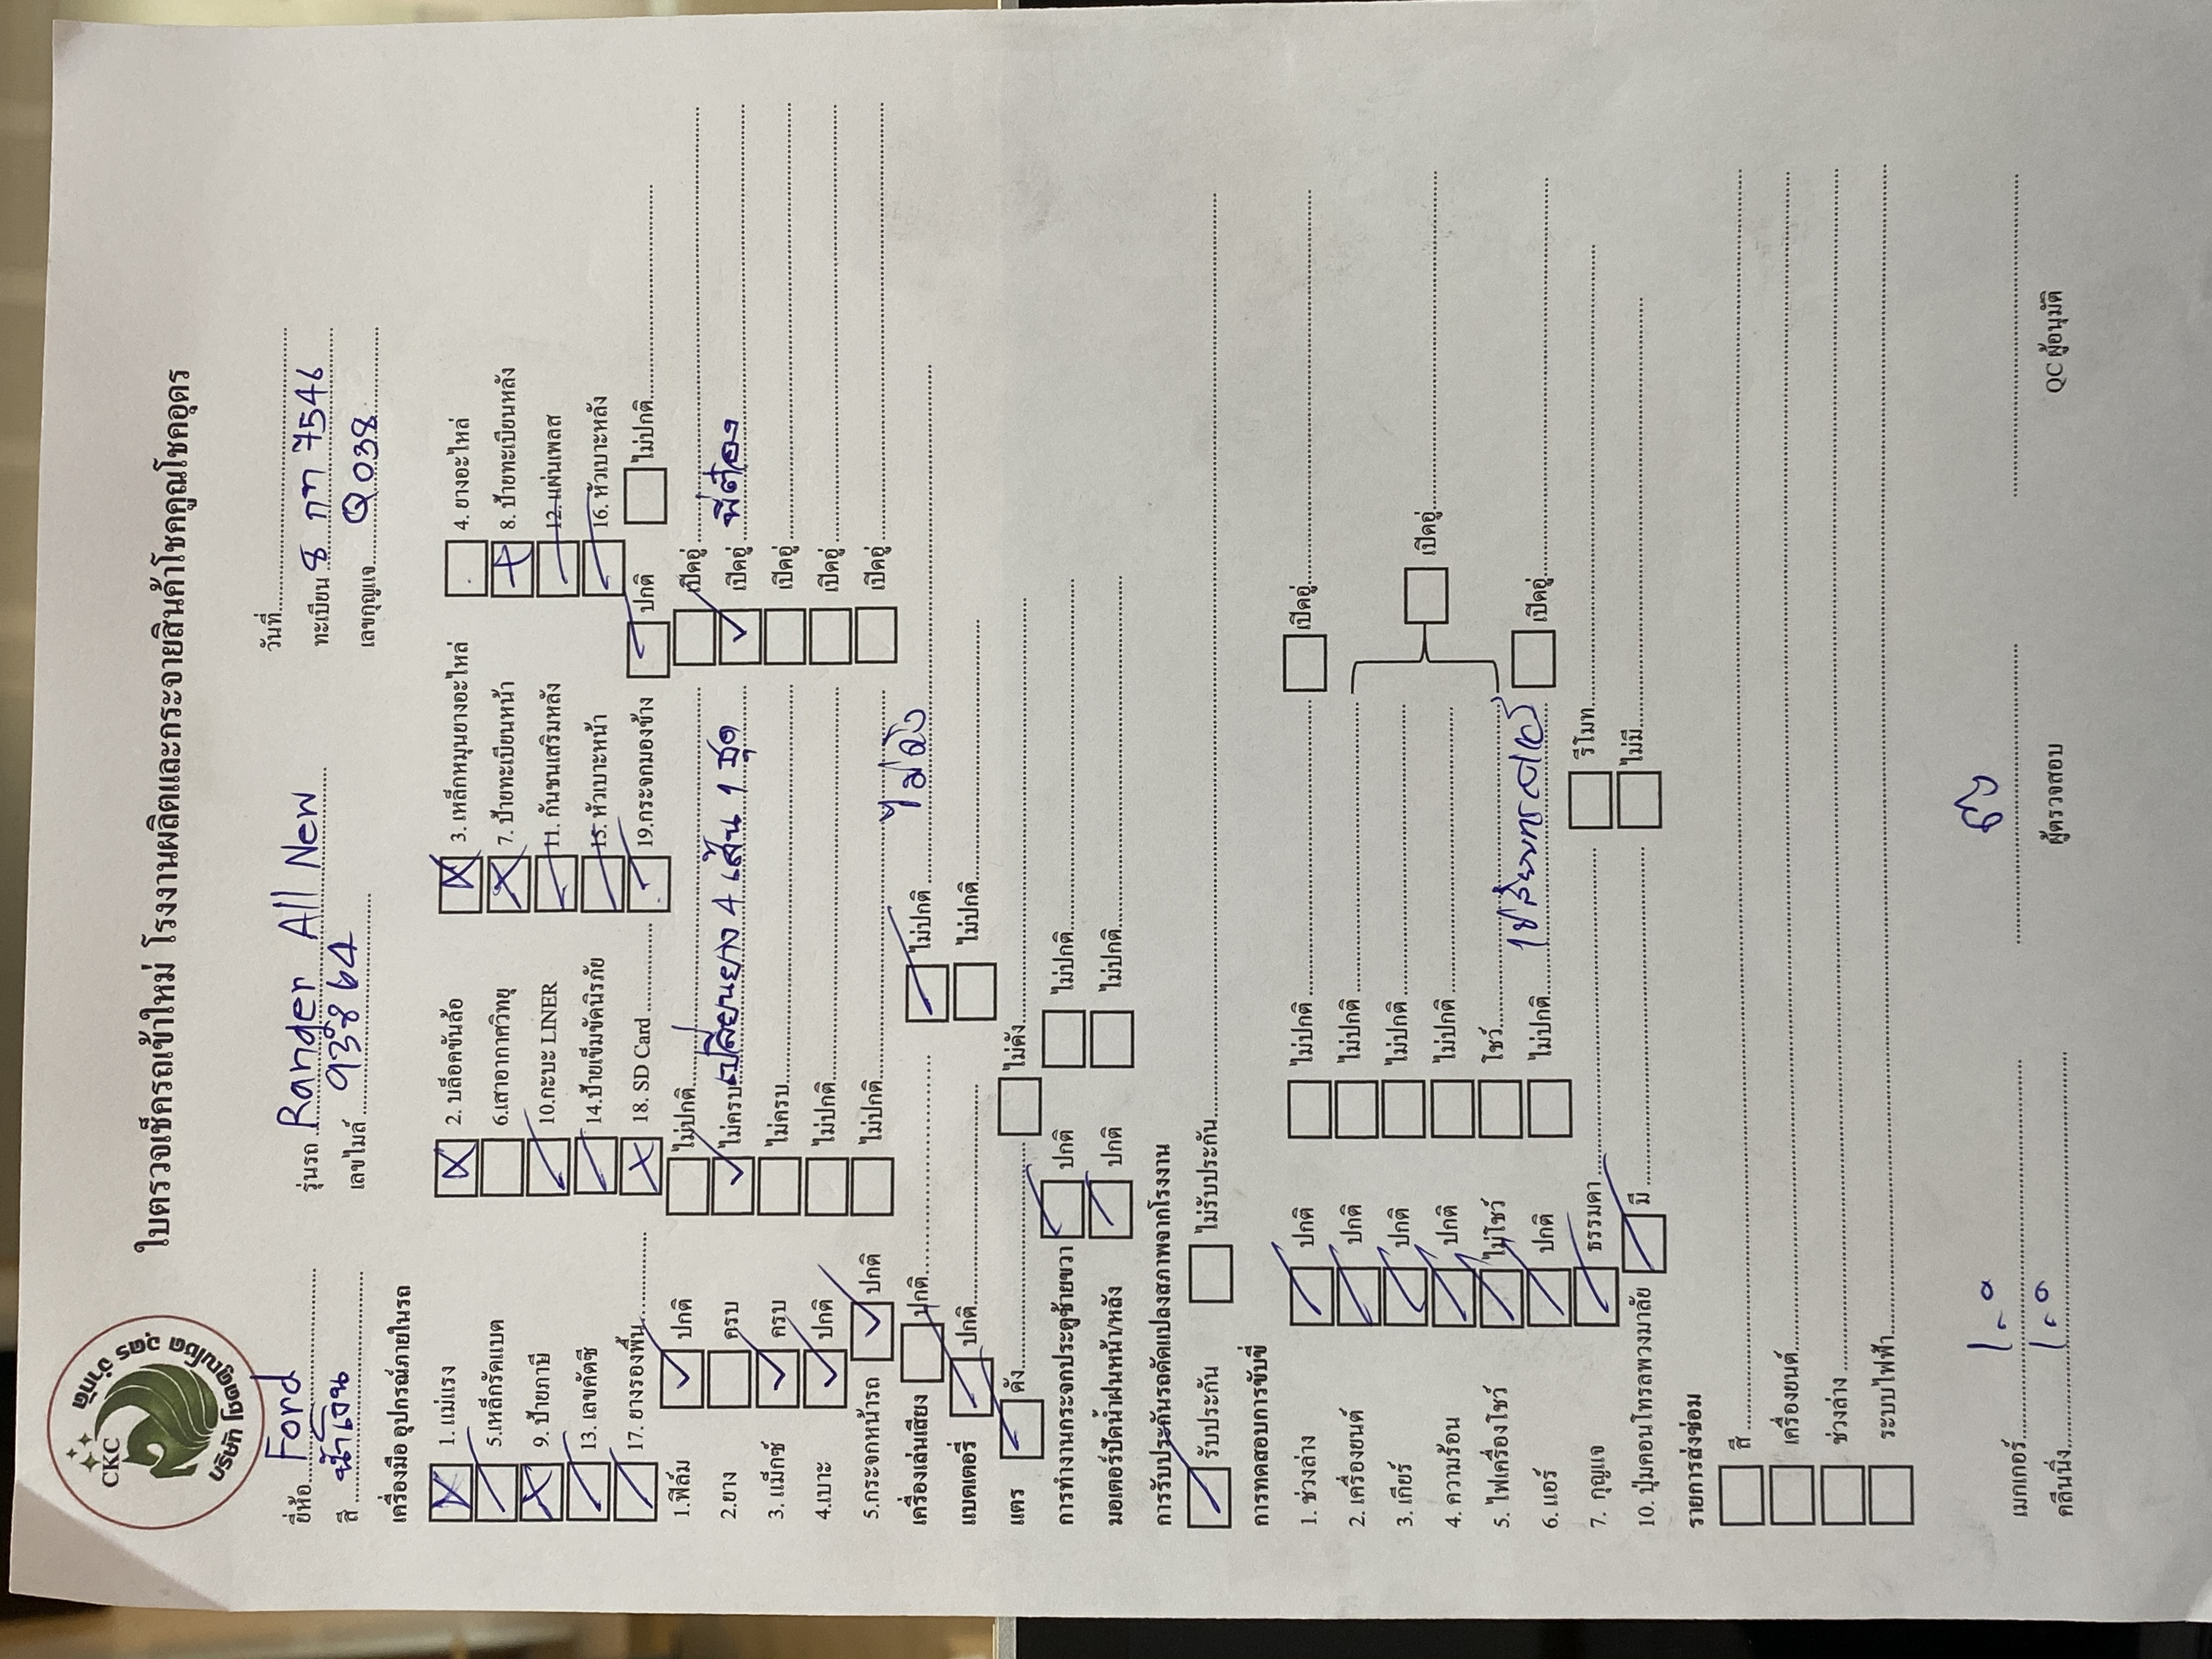 CKC
บริษัท โชคคูณโชค อุดร จำกัด
ใบตรวจเช็ครถเข้าใหม่ โรงงานผลิตและกระจายสินค้าโชคคูณโชคอุดร
วันที่
ยี่ห้อ Ford รุ่นรถ Ranger All New ทะเบียน 8 กท 7546
สี น้ำเงิน เลขไมล์ 93864 เลขกุญแจ Q038
เครื่องมือ อุปกรณ์ภายในรถ
1. แม่แรง 2. บล็อคขันล้อ 3. เหล็กหมุนยางอะไหล่ 4. ยางอะไหล่
5.เหล็กรัดแบต 6.เสาอากาศวิทยุ 7. ป้ายทะเบียนหน้า 8. ป้ายทะเบียนหลัง
9. ป้ายภาษี 10.กะบะ LINER 11. กันชนเสริมหลัง 12. แผ่นเพลส
13. เลขคัตซี 14.ป้ายเข็มขัดนิรภัย 15. หัวเบาะหน้า 16. หัวเบาะหลัง
17. ยางรองพื้น 18. SD Card 19.กระจกมองข้าง ปกติ ไม่ปกติ
1.ฟิล์ม ปกติ ไม่ปกติ เปิดอู่
2.ยาง ครบ ไม่ครบ เปลี่ยนยาง 4 เส้น 1 ชุด เปิดอู่
3. แม็กซ์ ครบ ไม่ครบ เปิดอู่
4.เบาะ ปกติ ไม่ปกติ เปิดอู่
5.กระจกหน้ารถ ปกติ ไม่ปกติ เปิดอู่
เครื่องเล่นเสียง ปกติ ไม่ปกติ ไม่ดัง
แบตเตอรี่ ปกติ ไม่ปกติ
แตร ดัง ไม่ดัง
การทำงานกระจกประตูซ้ายขวา ปกติ ไม่ปกติ
มอเตอร์ปัดน้ำฝนหน้า/หลัง ปกติ ไม่ปกติ
การรับประกันรถดัดแปลงสภาพจากโรงงาน
รับประกัน ไม่รับประกัน
การทดสอบการขับขี่
1. ช่วงล่าง ปกติ ไม่ปกติ เปิดอู่
2. เครื่องยนต์ ปกติ ไม่ปกติ
3. เกียร์ ปกติ ไม่ปกติ เปิดอู่
4. ความร้อน ปกติ ไม่ปกติ
5. ไฟเครื่องโชว์ ไม่โชว์ โชว์
6. แอร์ ปกติ ไม่ปกติ เปิดอู่
7. กุญแจ ธรรมดา รีโมท
10. ปุ่มคอนโทรลพวงมาลัย มี ไม่มี
รายการส่งซ่อม
สี
เครื่องยนต์
ช่วงล่าง
ระบบไฟฟ้า
เมกเกอร์
คลีนนิ่ง ผู้ตรวจสอบ QC ผู้อนุมัติ